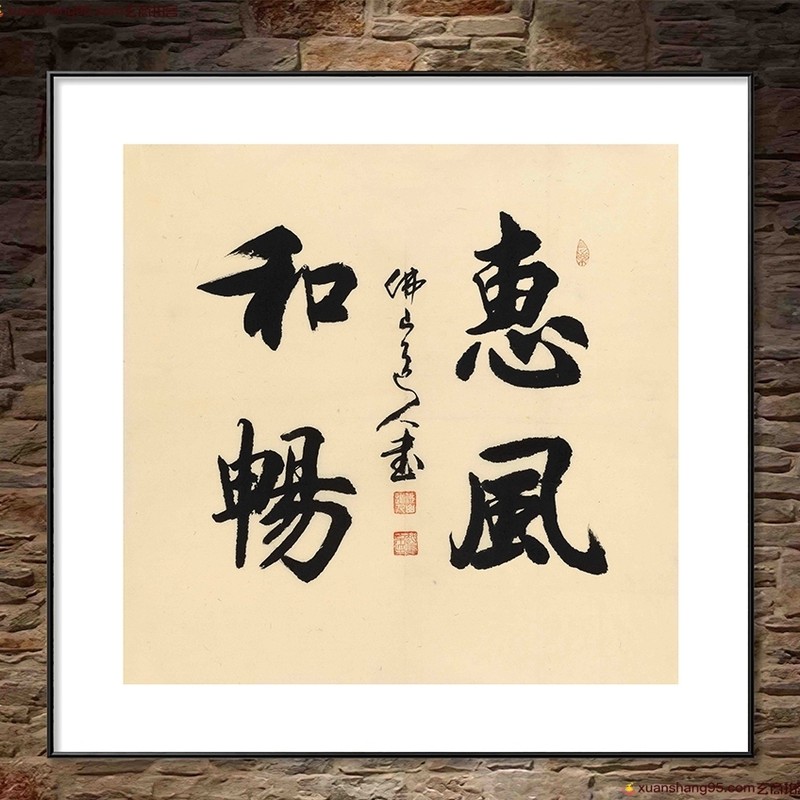 惠風
和暢
佛山道人書
xuanshang95.com艺